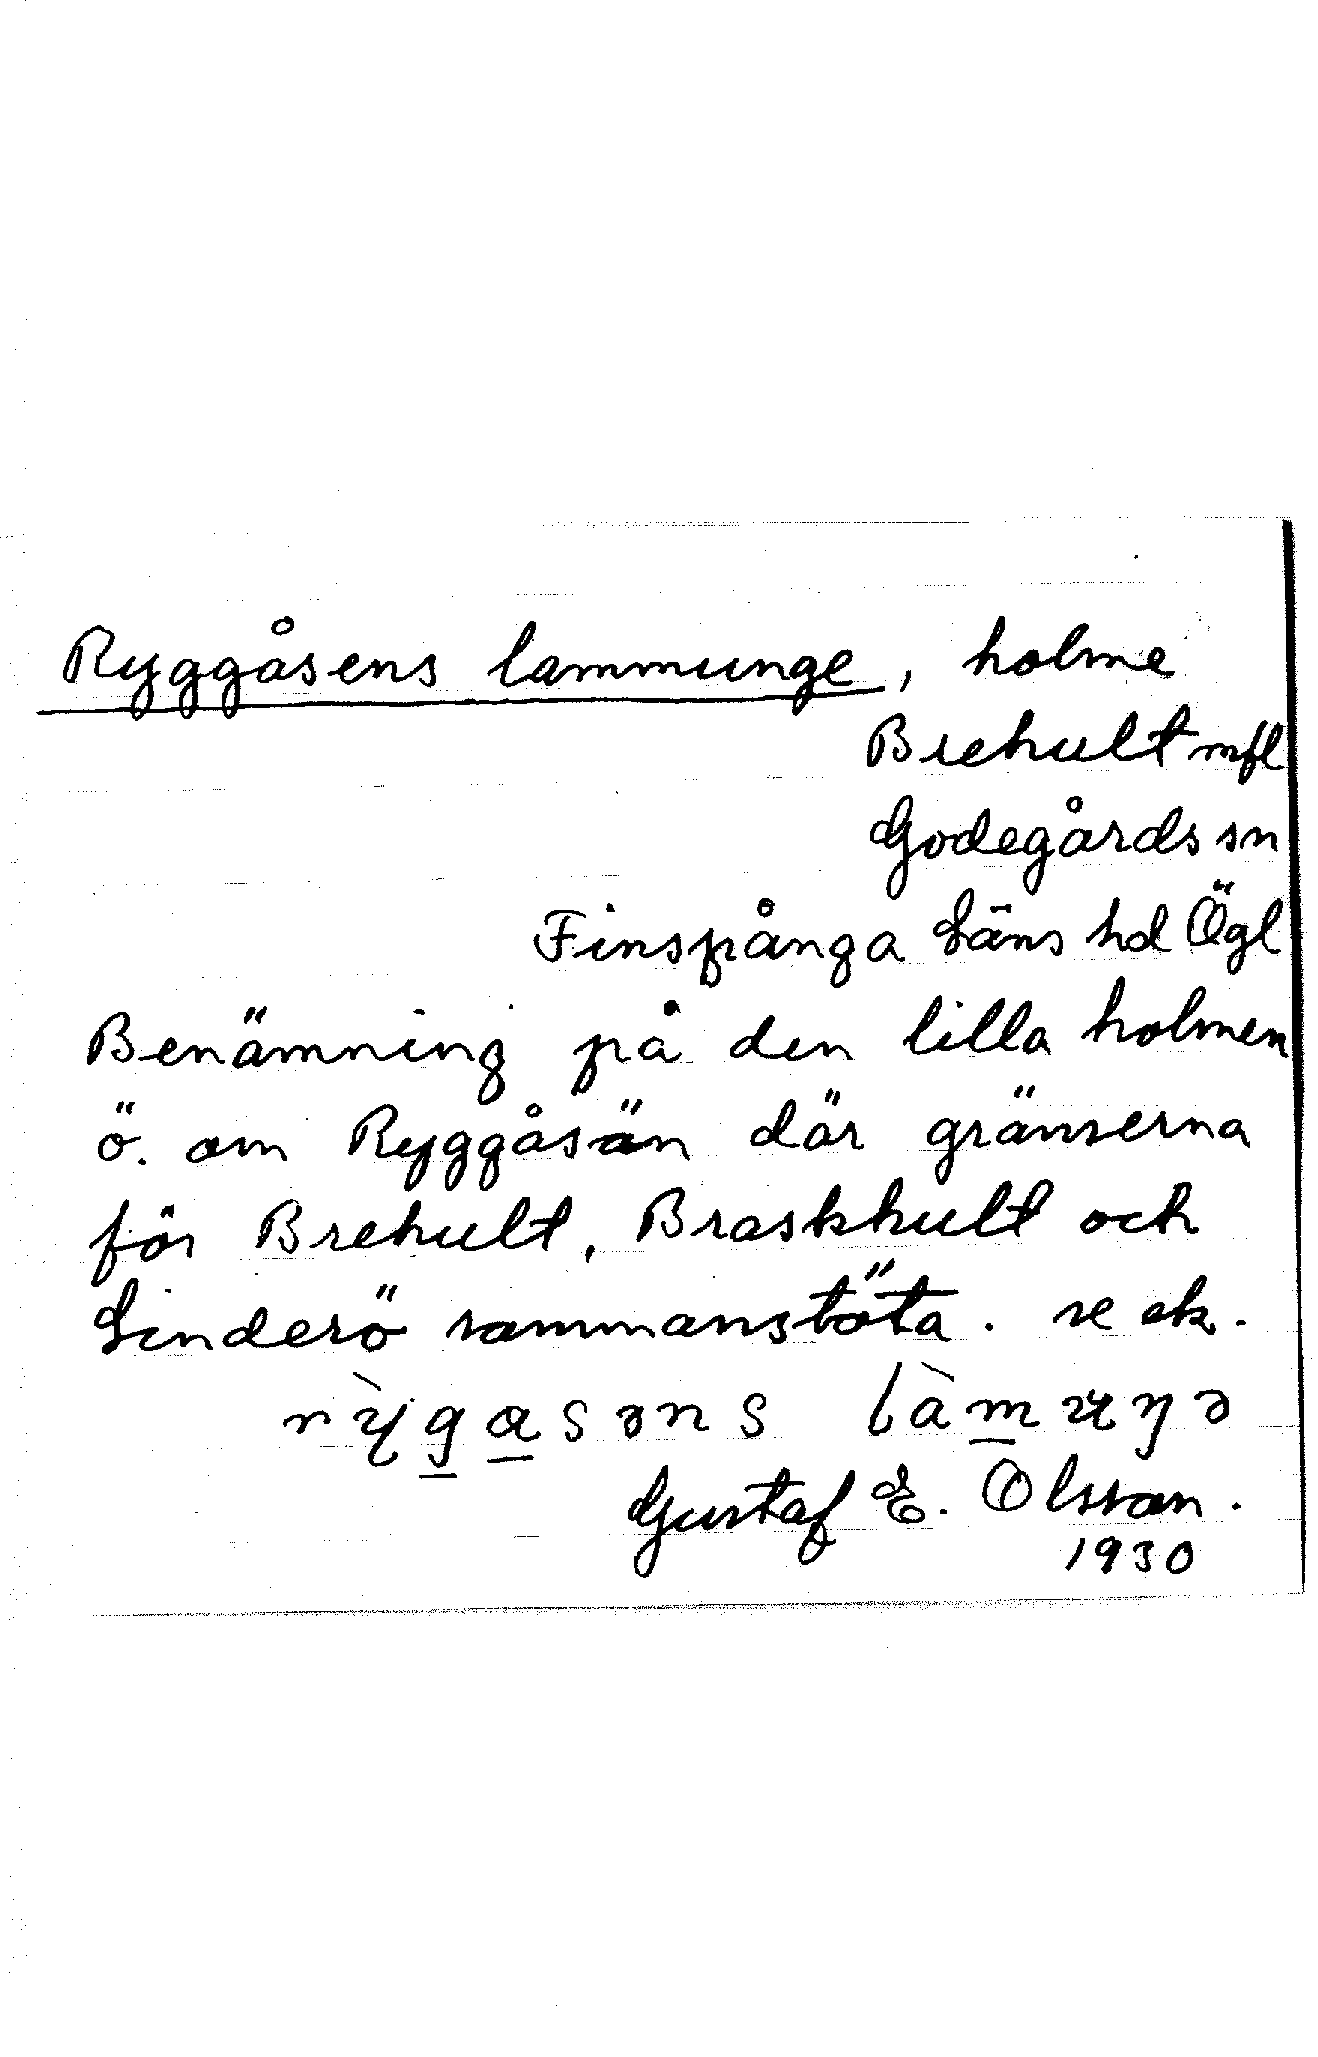 Ryggåsens lammunge, holme
Brehult mfl
Godegårds sn
Finspånga Läns hd Ögl
Benämning på den lilla holmen
ö. om Ryggåsän där gränserna
för Brehult, Braskhult och
Linderö sammanstöta. se ek.
rỳgɑsəns làmuŋə
Gustaf E. Olsson.
1930